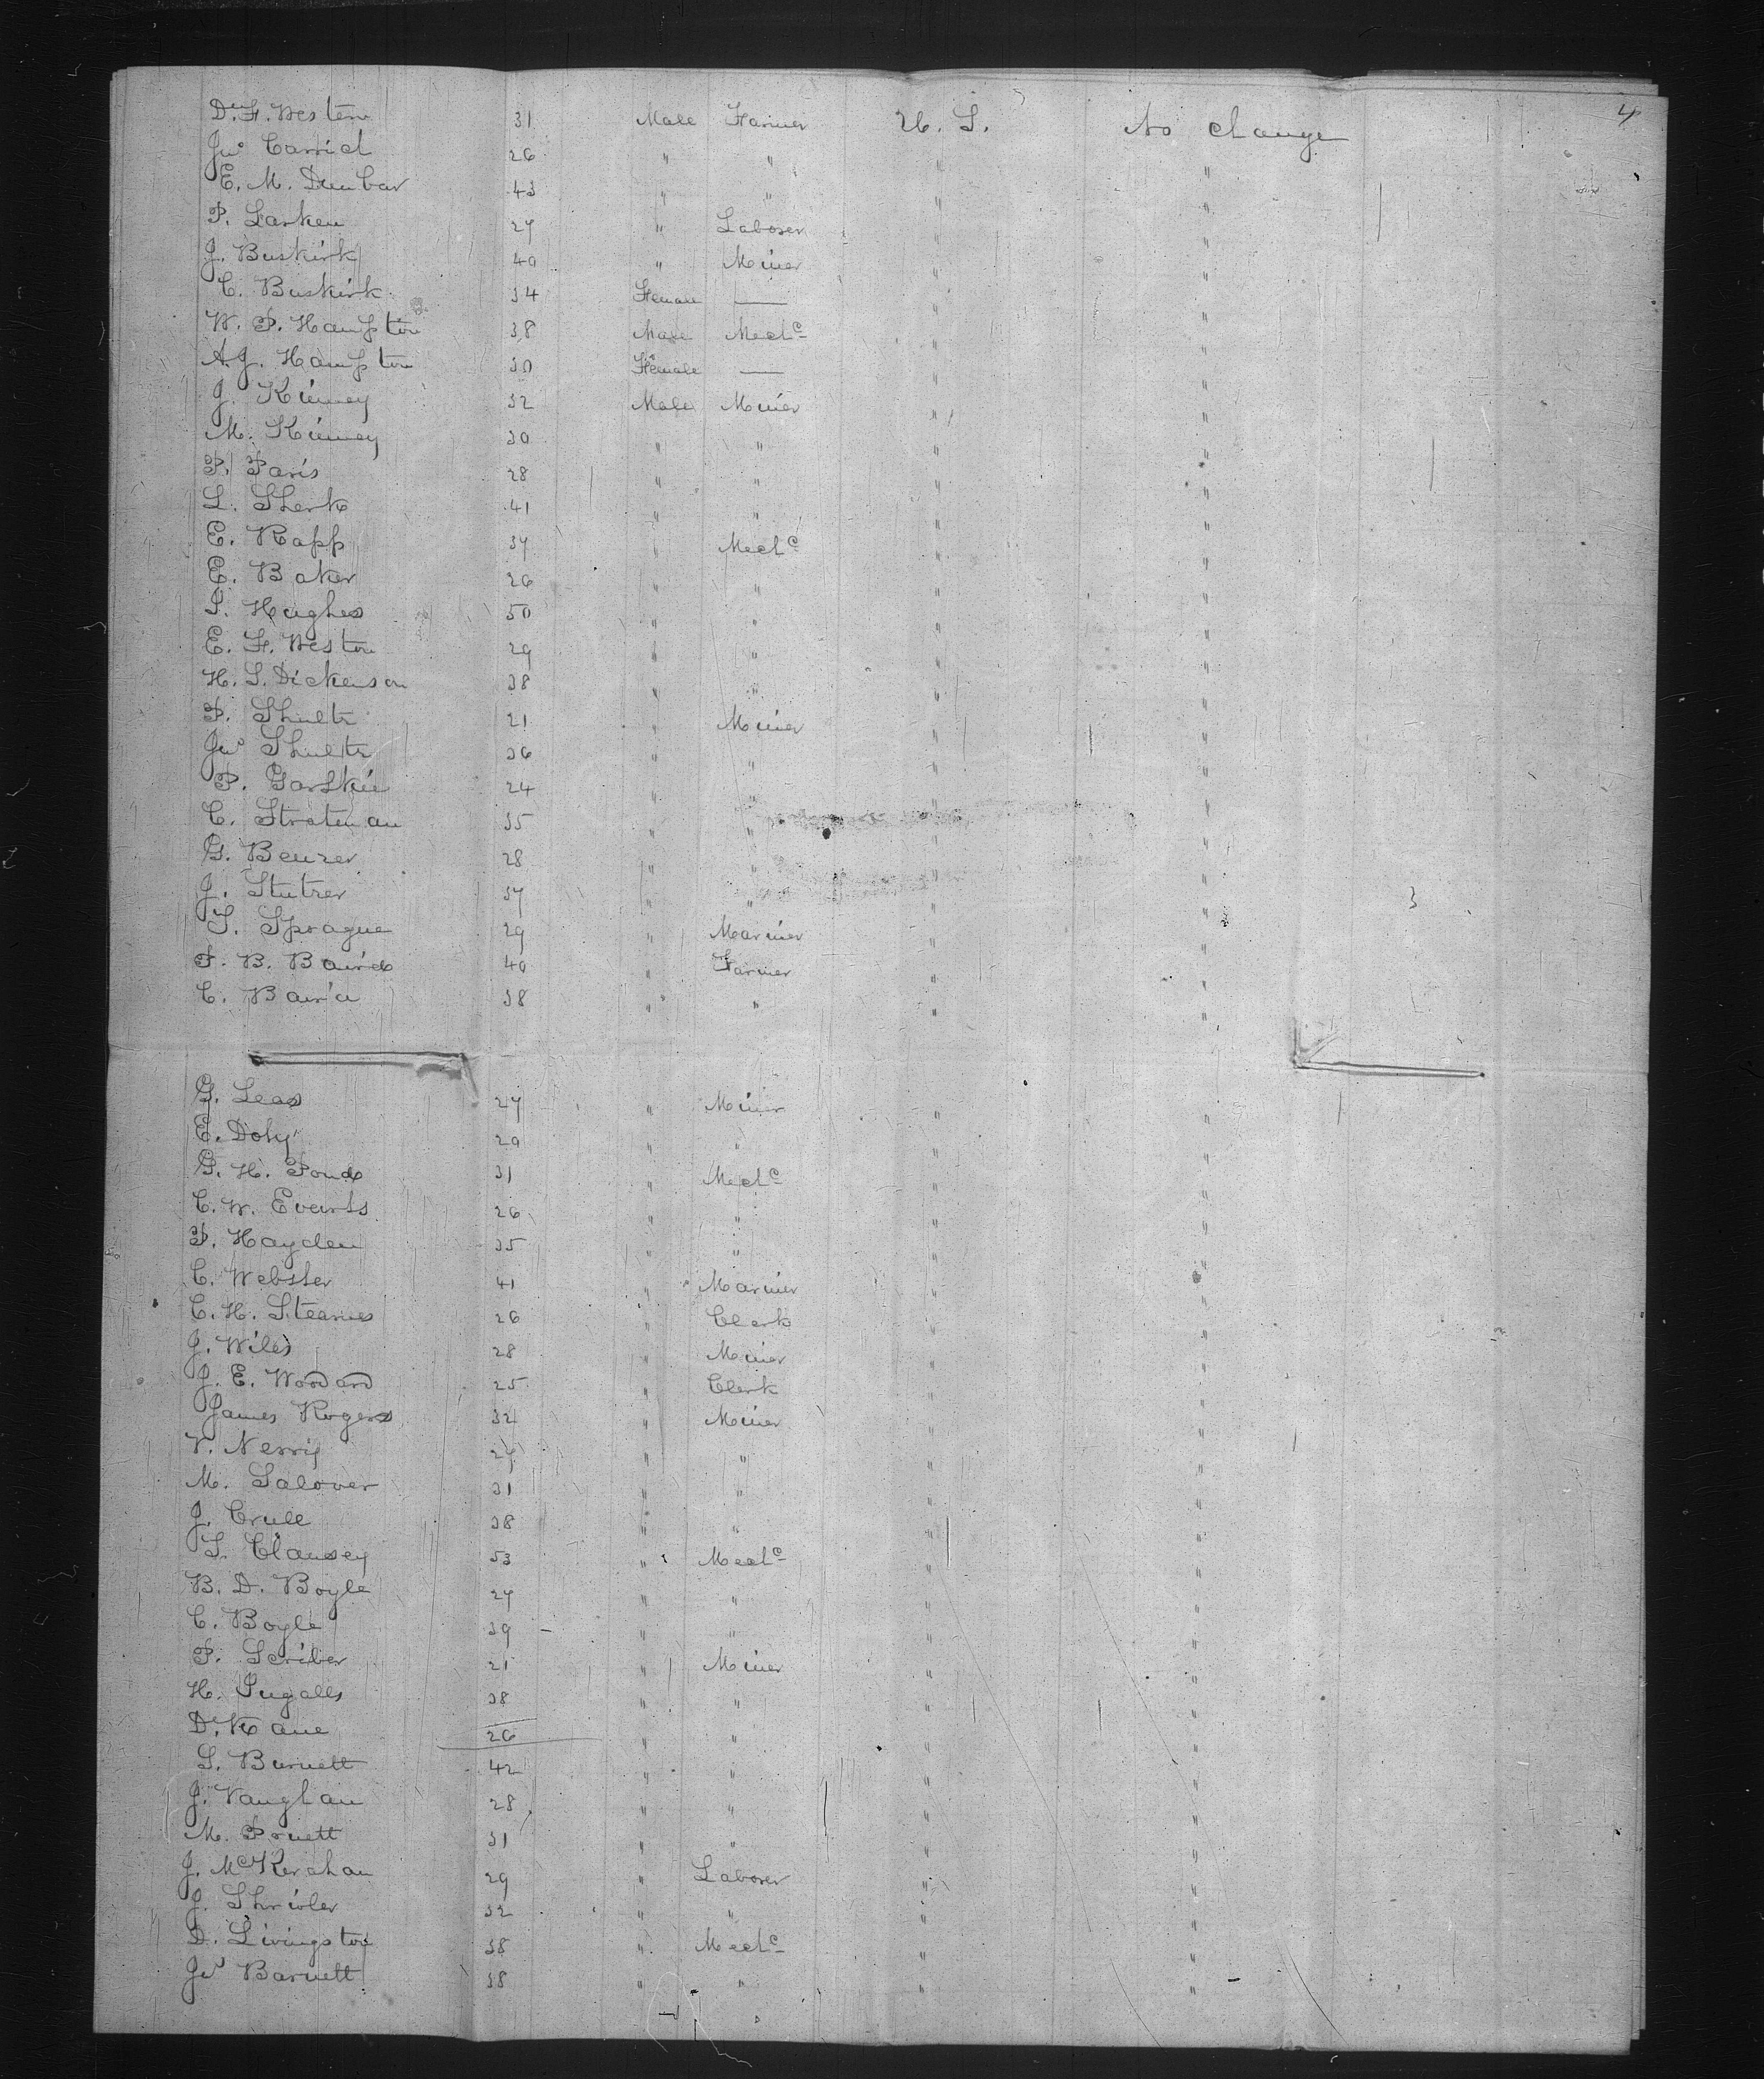 4
Dr. F. Weston 31 Male Farmer U. S. No change
Jno Carrick 26 " " " "
E. M. Dunbar 43 " " " "
P. Larken 27 " Laborer " "
J. Buskirk 40 " Miner " "
C. Buskirk 34 Female — " "
W. P. Hampton 38 Male Mechc " "
A. J. Hampton 30 Female — " "
J. Kinney 32 Male Miner " "
M. Kinney 30 " " " "
P. Paris 28 " " " "
L. Sherk 41 " " " "
E. Rapp 37 " Mechc " "
E. Baker 26 " " " "
S. Hughes 50 " " " "
E. F. Weston 29 " " " "
H. S. Dickenson 38 " " " "
P. Shultz 21 " Miner " "
Jno Shultz 36 " " " "
P. Garskie 24 " " " "
C. Strateman 35 " " " "
G. Beuzer 28 " " " "
J. Stutzer 37 " " " "
S. Sprague 29 " Marnier " "
P. B. Baird 40 " Farmer " "
C. Baird 38 " " " "
G. Leas 27 " Miner " "
E. Doty 29 " " " "
G. H. Pond 31 " Mechc " "
C. W. Evarts 26 " " " "
P. Hayden 35 " " " "
C. Webster 41 " Marnier " "
C. H. Stearnes 26 " Clerk " "
J. Wiles 28 " Miner " "
J. E. Woodard 25 " Clerk " "
James Rogers 32 " Miner " "
V. Nerrij 27 " " " "
M. Salover 31 " " " "
J. Crull 38 " " " "
S. Clausey 53 " Mechc " "
B. D. Boyle 27 " " " "
C. Boyle 39 " " " "
P. Scriber 21 " Miner " "
H. Ingalls 38 " " " "
D. Kane 26 " " " "
S. Burnett 42 " " " "
J. Vaughan 28 " " " "
M. Pruett 31 " " " "
J. McKerahan 29 " Laborer " "
J. Shrivler 32 " " " "
D. Livingston 38 " Mechc " "
Jno Barnett 38 " " " "